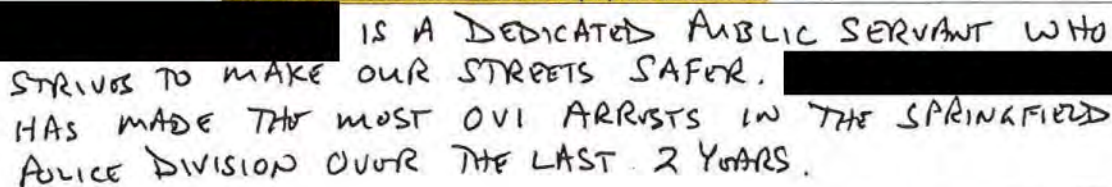 IS A DEDICATED PUBLIC SERVANT WHO
STRIVES TO MAKE OUR STREETS SAFER.
HAS MADE THE MOST OVI ARRESTS IN THE SPRINGFIELD
POLICE DIVISION OVER THE LAST 2 YEARS.